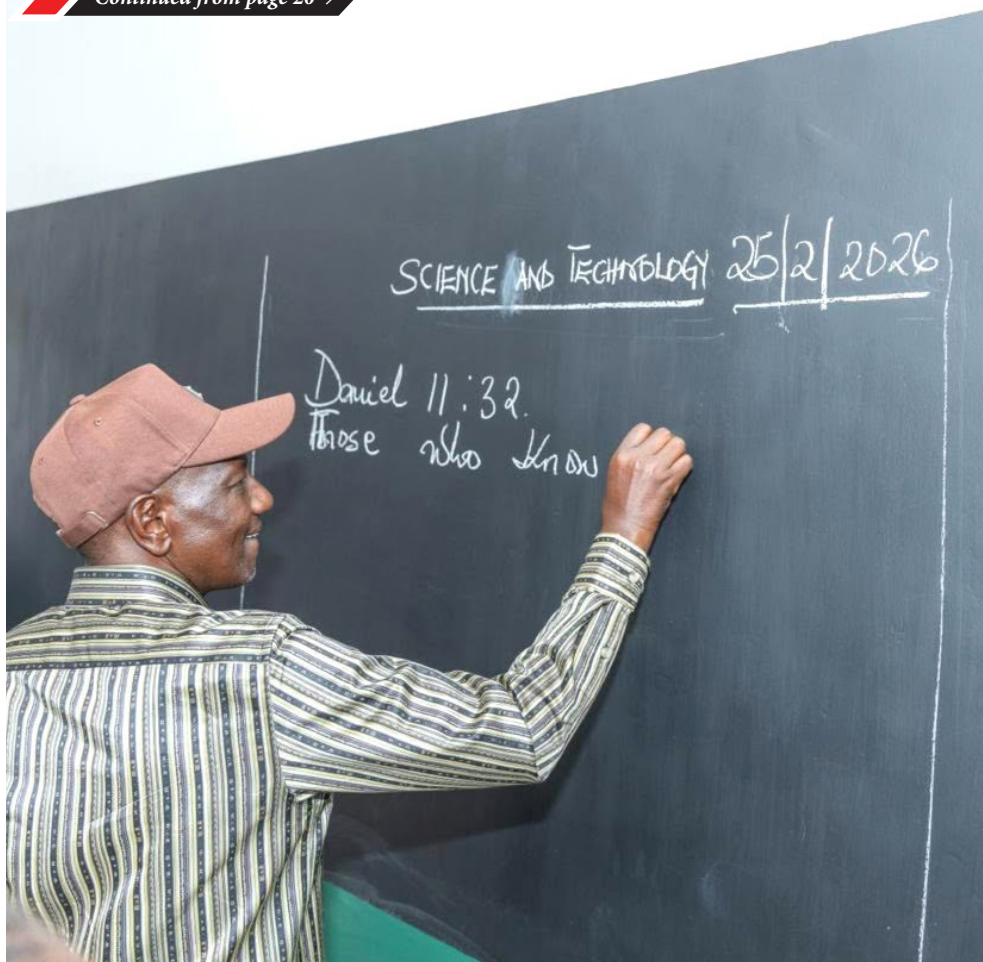 Continued from page 26
SCIENCE AND TECHNOLOGY 25/2/2026
Daniel 11:32.
Those Who Know